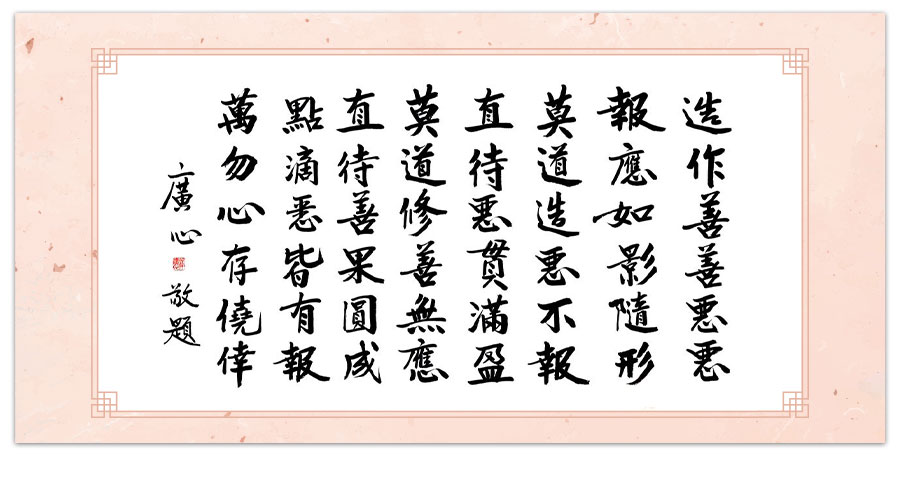 造作善善惡惡
報應如影隨形
莫道造惡不報
直待惡貫滿盈
莫道修善無應
直待善果圓成
點滴惡皆有報
萬勿心存僥倖
廣心敬題